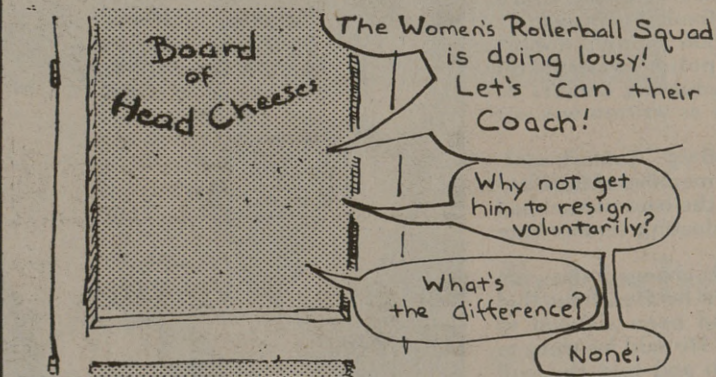 Board
of
Head Cheeses
The Women's Rollerball Squad
is doing lousy!
Let's can their
Coach!
Why not get
him to resign
voluntarily?
What's
the difference?
None.